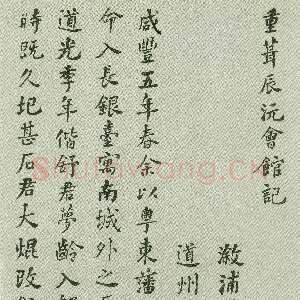 重葺辰沅會館記
漵浦
道州
咸豐五年春余以粵東藩
命入長銀臺寓南城外之
道光季年偕舒君夢齡入
時既久圮甚石君大焜改
Shufawang.CN